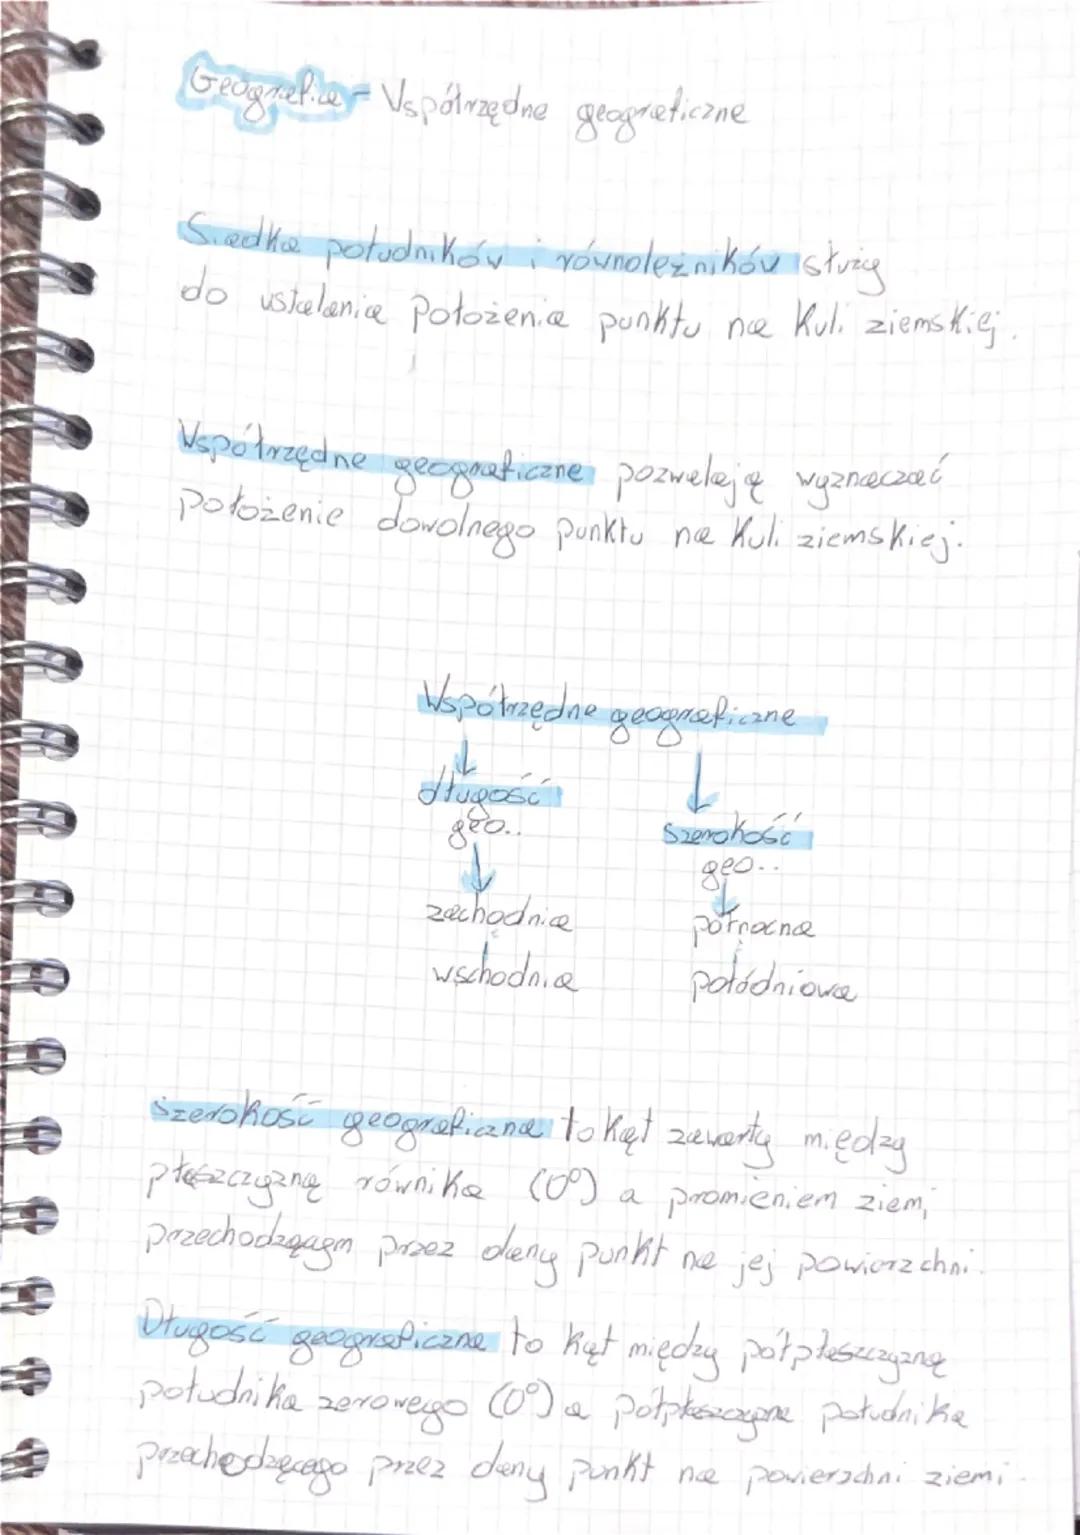 Geografia - Współrzędne geograficzne
Siadka południków i równoleżników służy
do ustalania położenia punktu na Kuli ziemskiej.
Współrzędne geograficzne pozwalają wyznaczać
położenie dowolnego punktu na Kuli ziemskiej.
Współrzędne geograficzne
długość
geo..
szerokość
geo..
zachodnia
północna
wschodnia
połódniowa
Szerokość geograficzna to kąt zawarty między
płaszczyzną równika (0°) a promieniem ziemi
przechodzącym przez dany punkt na jej powierzchni.
Długość geograficzna to kąt między półpłaszczyzną
południka zerowego (0°) a półpłaszczyzną południka
przechodzącego przez dany punkt na powierzchni ziemi.